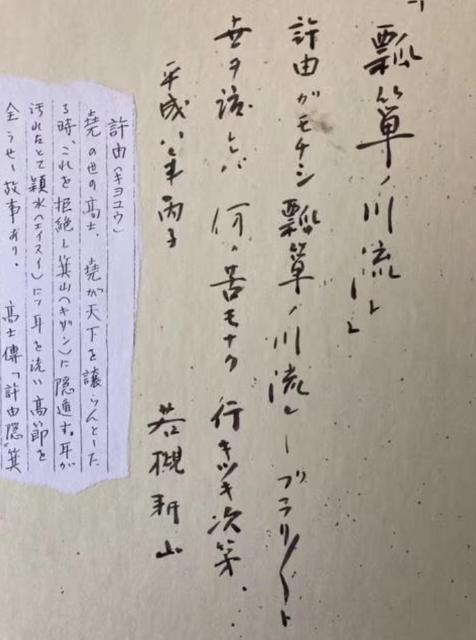 「瓢箪ノ川流レ」
許由ガモチシ瓢箪ノ川流レ ブラリ〱ト
世ヲ渡レバ 何ノ苦モナク 行キツキ次第.
平成八年丙子 若槻耕山
許由(キヨユウ)
堯の世の高士、堯が天下を譲らんとした
る時、これを拒絶し箕山(キザン)に隠遁す。耳が
汚れたとて穎水(エイスイ)にて耳を洗い高節を
全うせし故事あり。 高士傳「許由隠箕